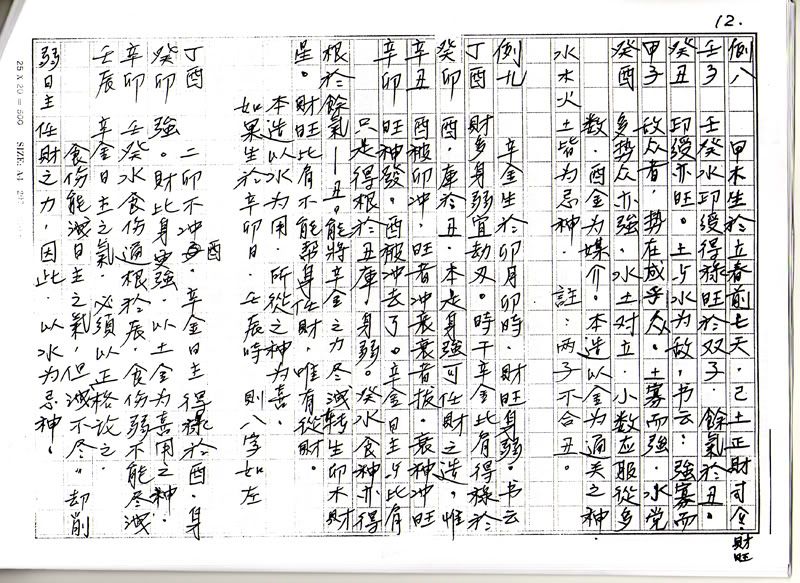 12.
例八　甲木生於立春前七天．己土正財司令．財旺
壬子　壬癸水印綬得祿旺於双子．餘氣於丑．
癸丑　印綬亦旺．土与水为敌．书云：強寡而
甲子　敌众者．势在成乎众．土寡而強．水党
癸酉　多势众亦強．水土对立．小数应服從多
数．酉金为媒介．本造以金为通关之神
水木火土皆为忌神．註：两子不合丑。
例九　辛金生於卯月卯時．財旺身弱．书云
丁酉　財多身弱宜劫刃。時干辛金比肩得祿於
癸卯　酉．庫於丑．本是身強可任財之造，惟
辛丑　酉被卯冲．旺者冲衰衰者拔．衰神冲旺
辛卯　旺神發．酉被冲去了。辛金日主与比肩
只是得根於丑庫．身弱。癸水食神亦得
根於餘氣—丑。能將辛金之力尽洩转生卯木財
星。財旺比肩不能帮身任財．唯有從財．
本造以水为用．所從之神为喜．
如果生於辛卯日．壬辰時　則八字如左
丁酉　二卯不冲酉．辛金日主得祿於酉．身
癸卯　強。財比身更強．以土金为喜用之神．
辛卯　壬癸水食伤通根於辰．食伤弱不能尽洩
壬辰　辛金日主之氣．必須以正格設之．
食伤能洩日主之氣，但洩不尽．却削
弱日主任財之力．因此．以水为忌神．
25 X 20 = 500　SIZE: A4